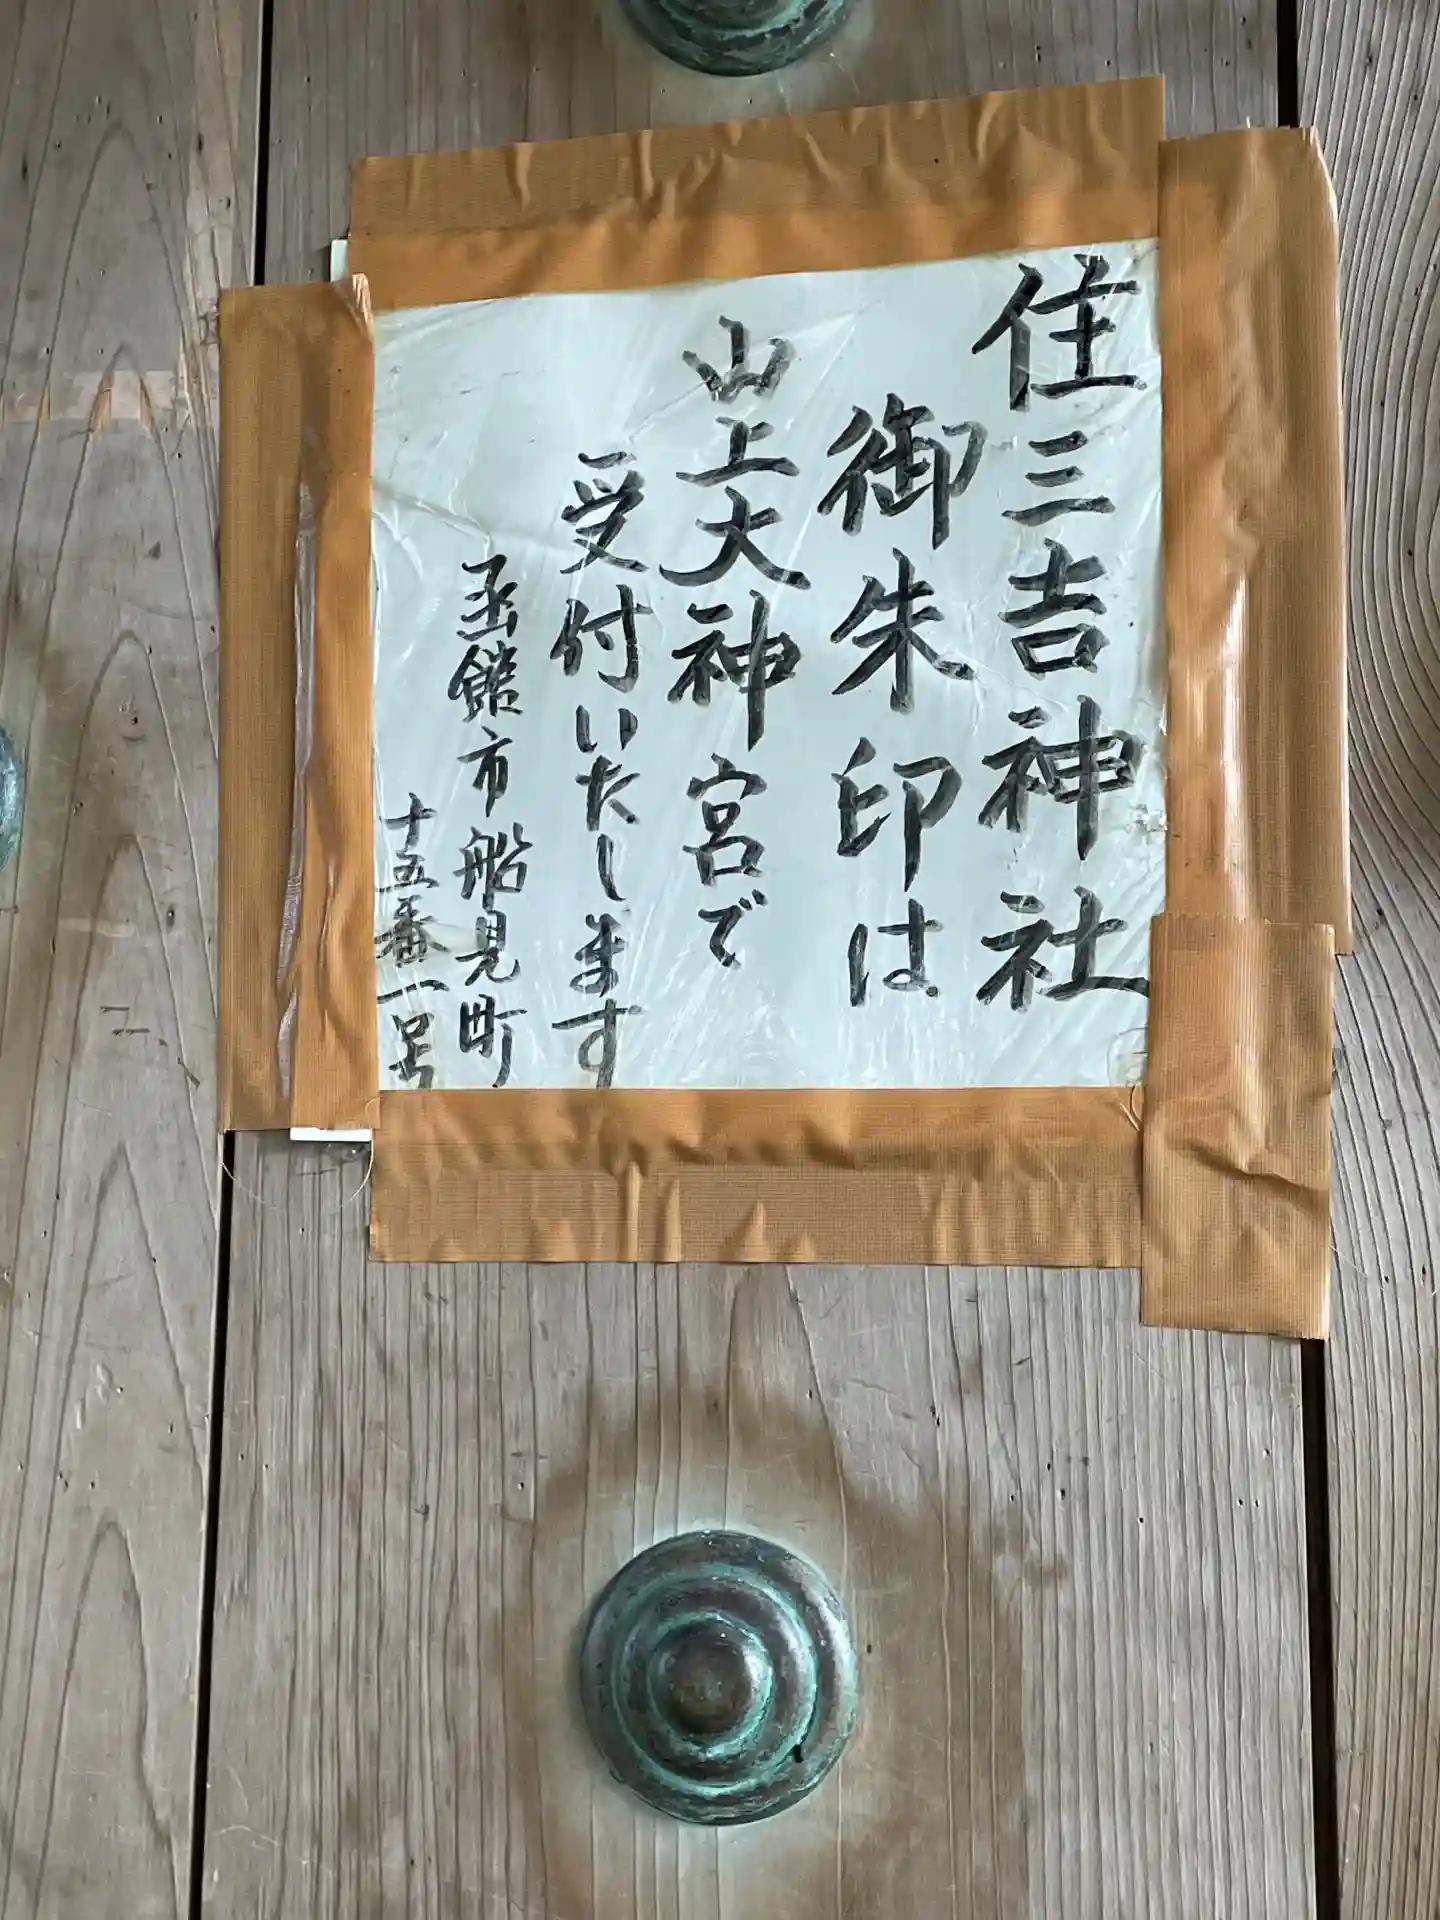 住三吉神社
御朱印は
山上大神宮で
受付いたします
函館市船見町
十五番一号